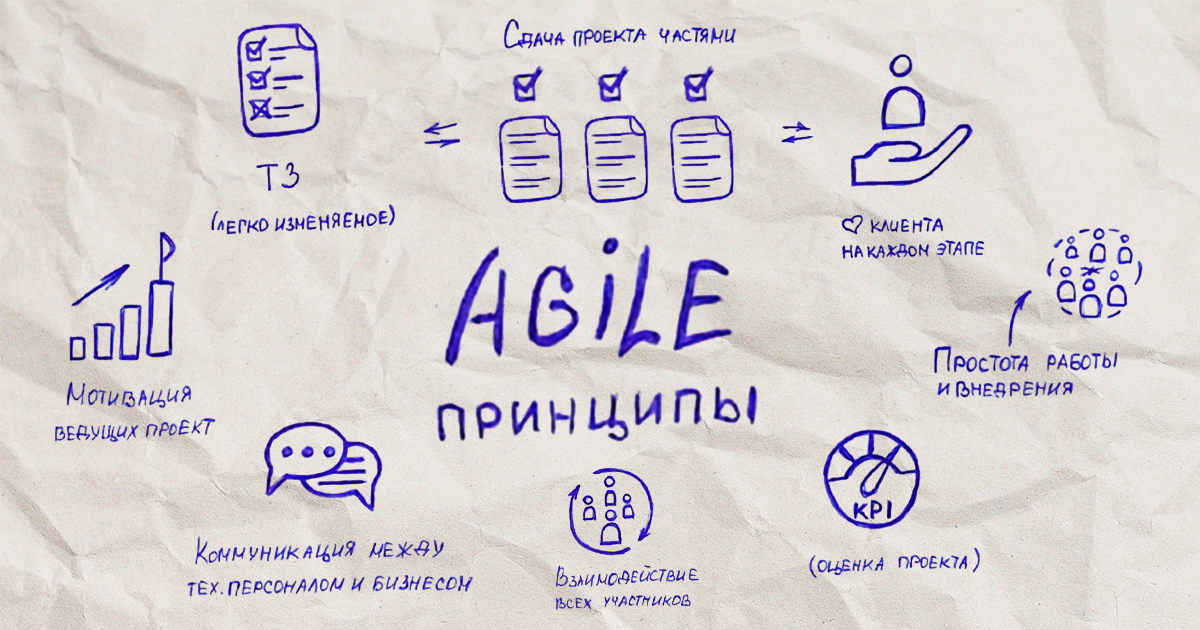 Сдача проекта частями
ТЗ
(легко изменяемое)
♡ клиента
на каждом этапе
AGiLE
принципы
Простота работы
и внедрения
Мотивация
ведущих проект
KPI
(оценка проекта)
Коммуникация между
тех. персоналом и бизнесом
Взаимодействие
всех участников